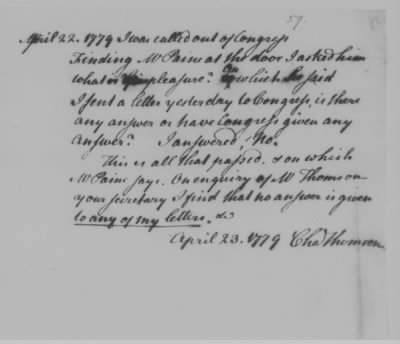 59.
April 22. 1779 I was called out of Congress
Finding Mr Paine at the door I asked him
what pleasure? On which he said
I sent a letter yesterday to Congress, is there
any answer or have Congress given any
answer? I answered, No.
This is all that passed. & on which
Mr Paine says. On enquiry of Mr Thomson
your secretary I find that no answer is given
to any of my letters. &c
April 23. 1779 Cha Thomson